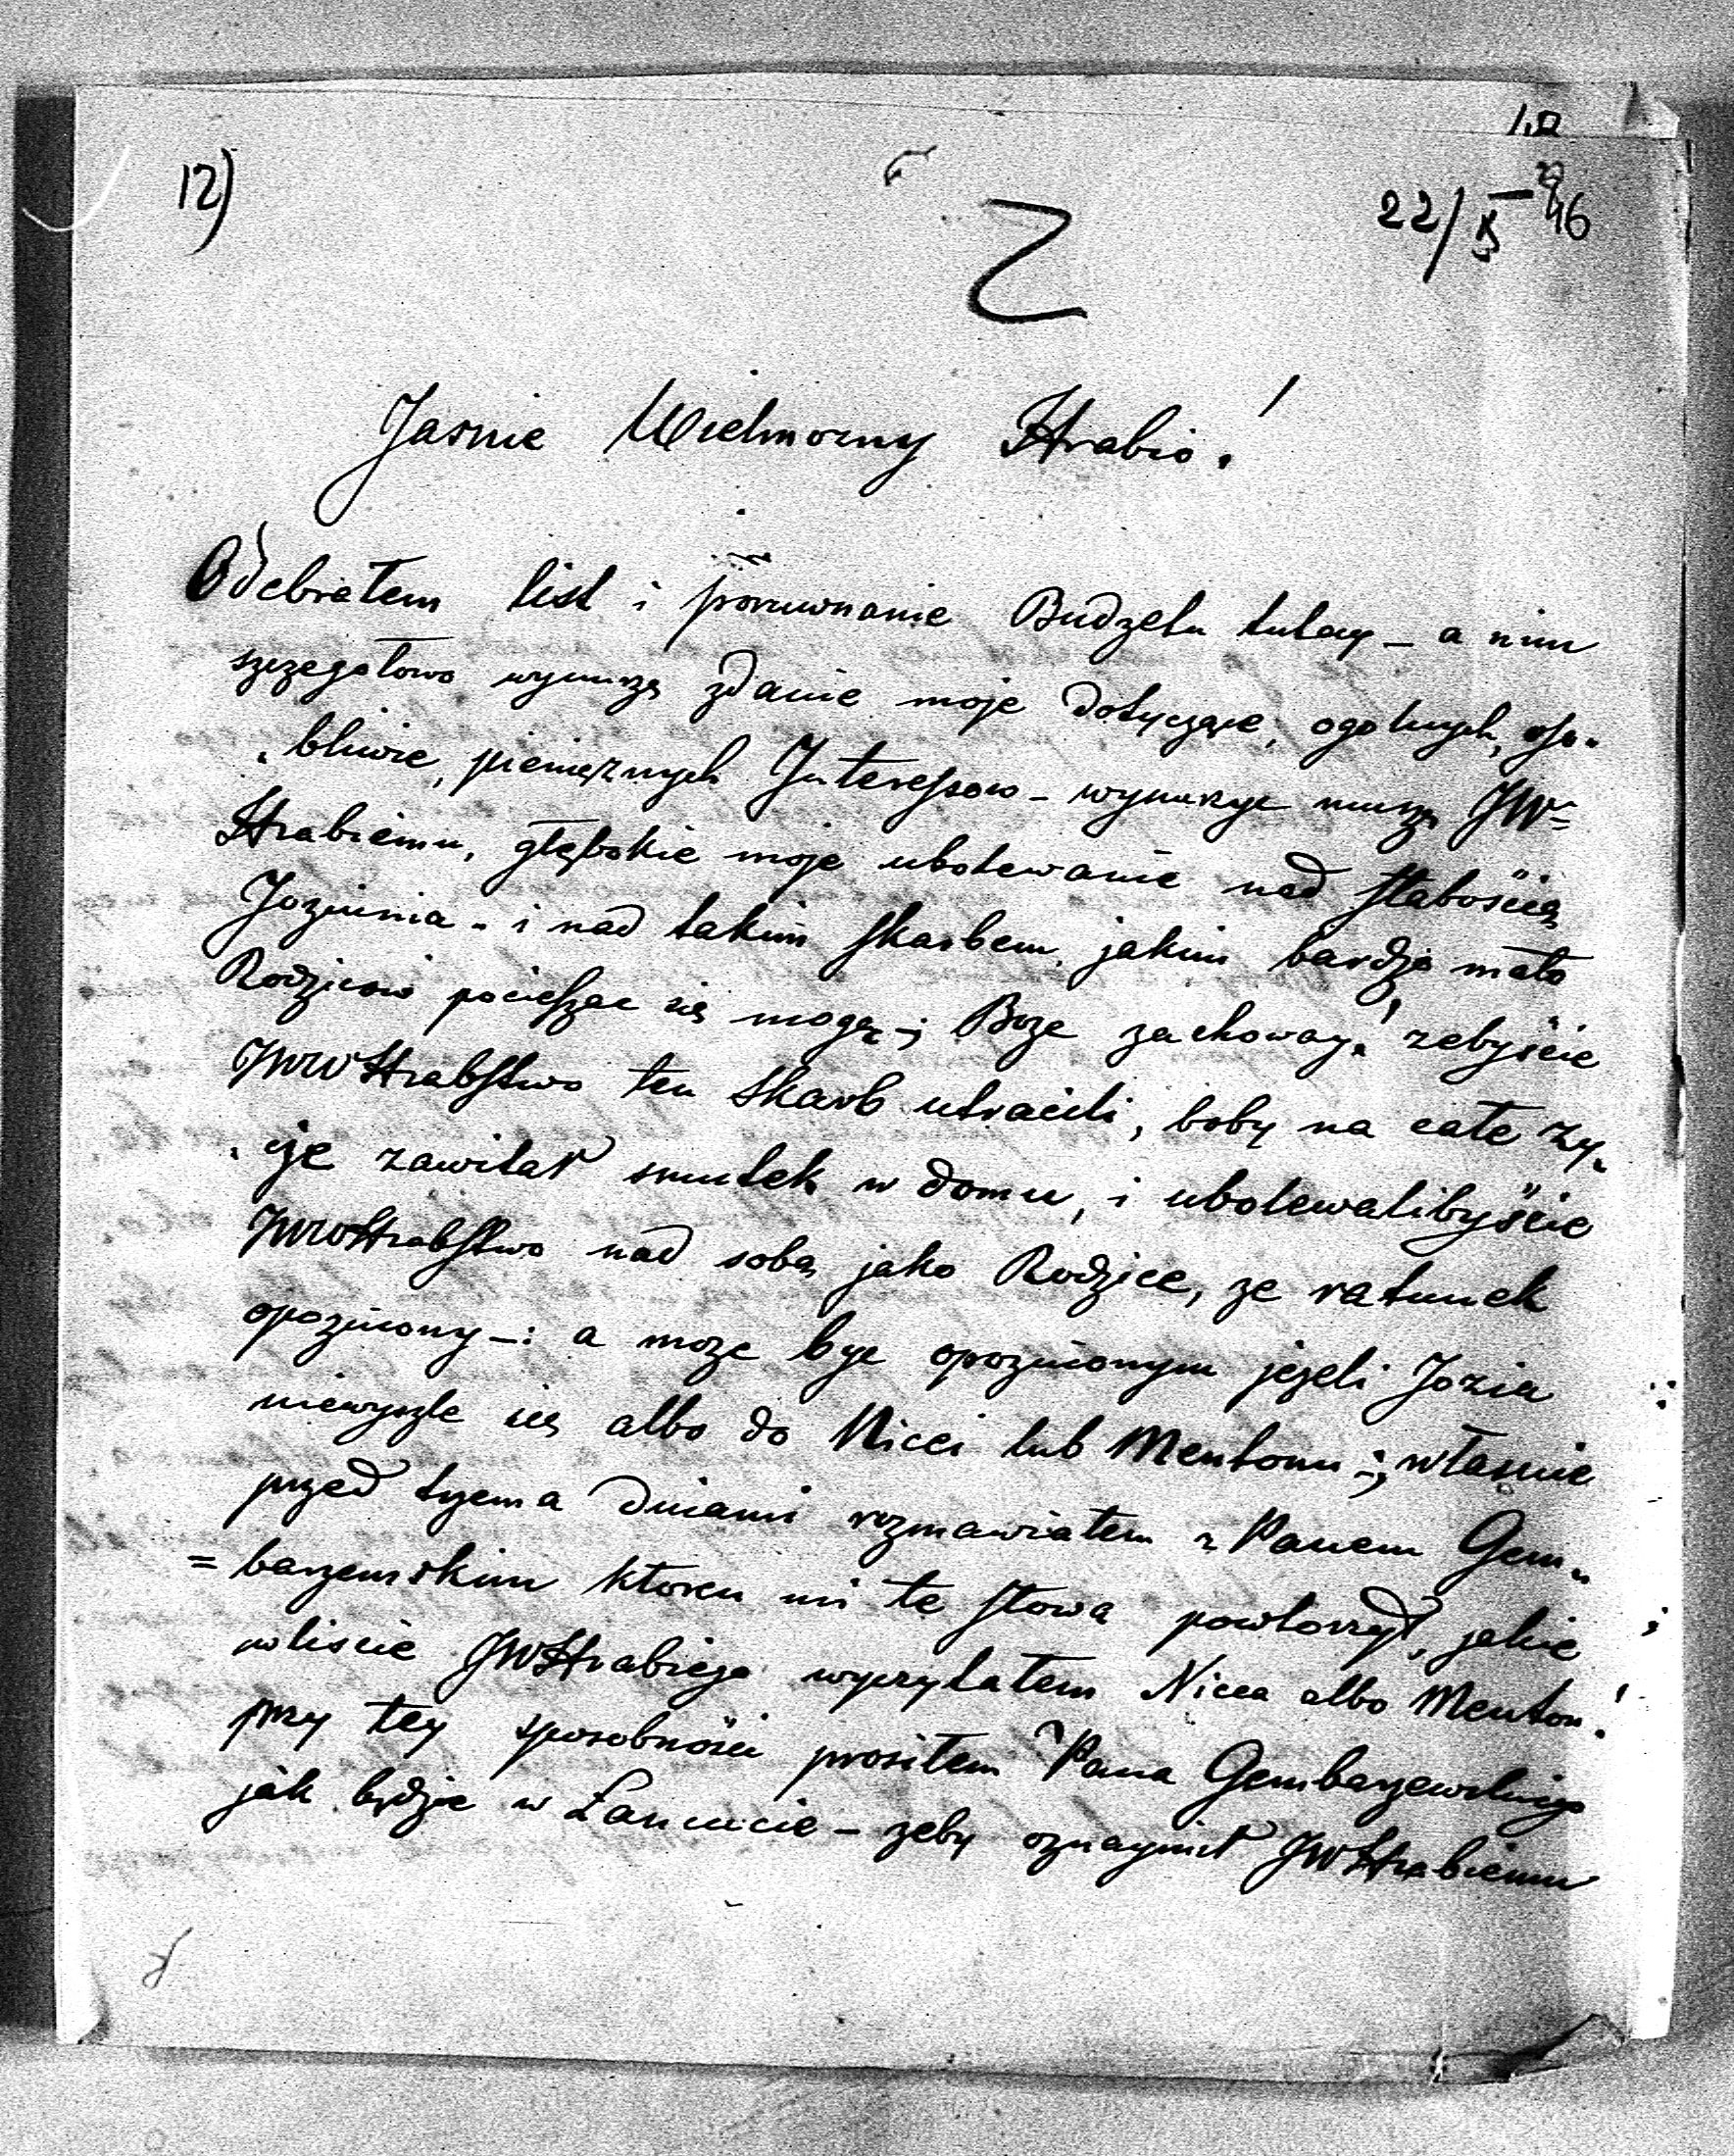 12)
22/X 46
Jasnie Wielmozny Hrabio!
Odebrałem list i porownanie Budzetu tutay – a nim
szczegołowo wynurzę zdanie moje dotyczące, ogolnych, oso-
bliwie, pieniężnych Interessow – wynurzyc muszę JW=
Hrabiemu, głębokie moje ubolewanie nad słabościa
Joziunia – i nad takim skarbem, jakim bardzo mało
Rodzicow pocieszac się mogą –; Boze zachoway! zebyście
JWWHrabstwo ten Skarb utracili, boby na całe zy-
cje zawitał smutek w domu, i ubolewalibyście
JWWHrabstwo nad sobą jako Rodzice, ze ratunek
opozniony –: a moze byc opoznionym jezeli Jozia
niewyszle się albo do Nicei lub Mentonu –; własnie
przed trzema dniami rozmawiałem z Panem Gem-
=barzewskim ktoren mi te słowa powtorzył, jakie
w liscie JWHrabiego wyczytałem Nicea albo Menton!
przy tey sposobności prosiłem Pana Gembarzewskiego
jak będzie w Łancucie – zeby oznaymił JWHrabiemu